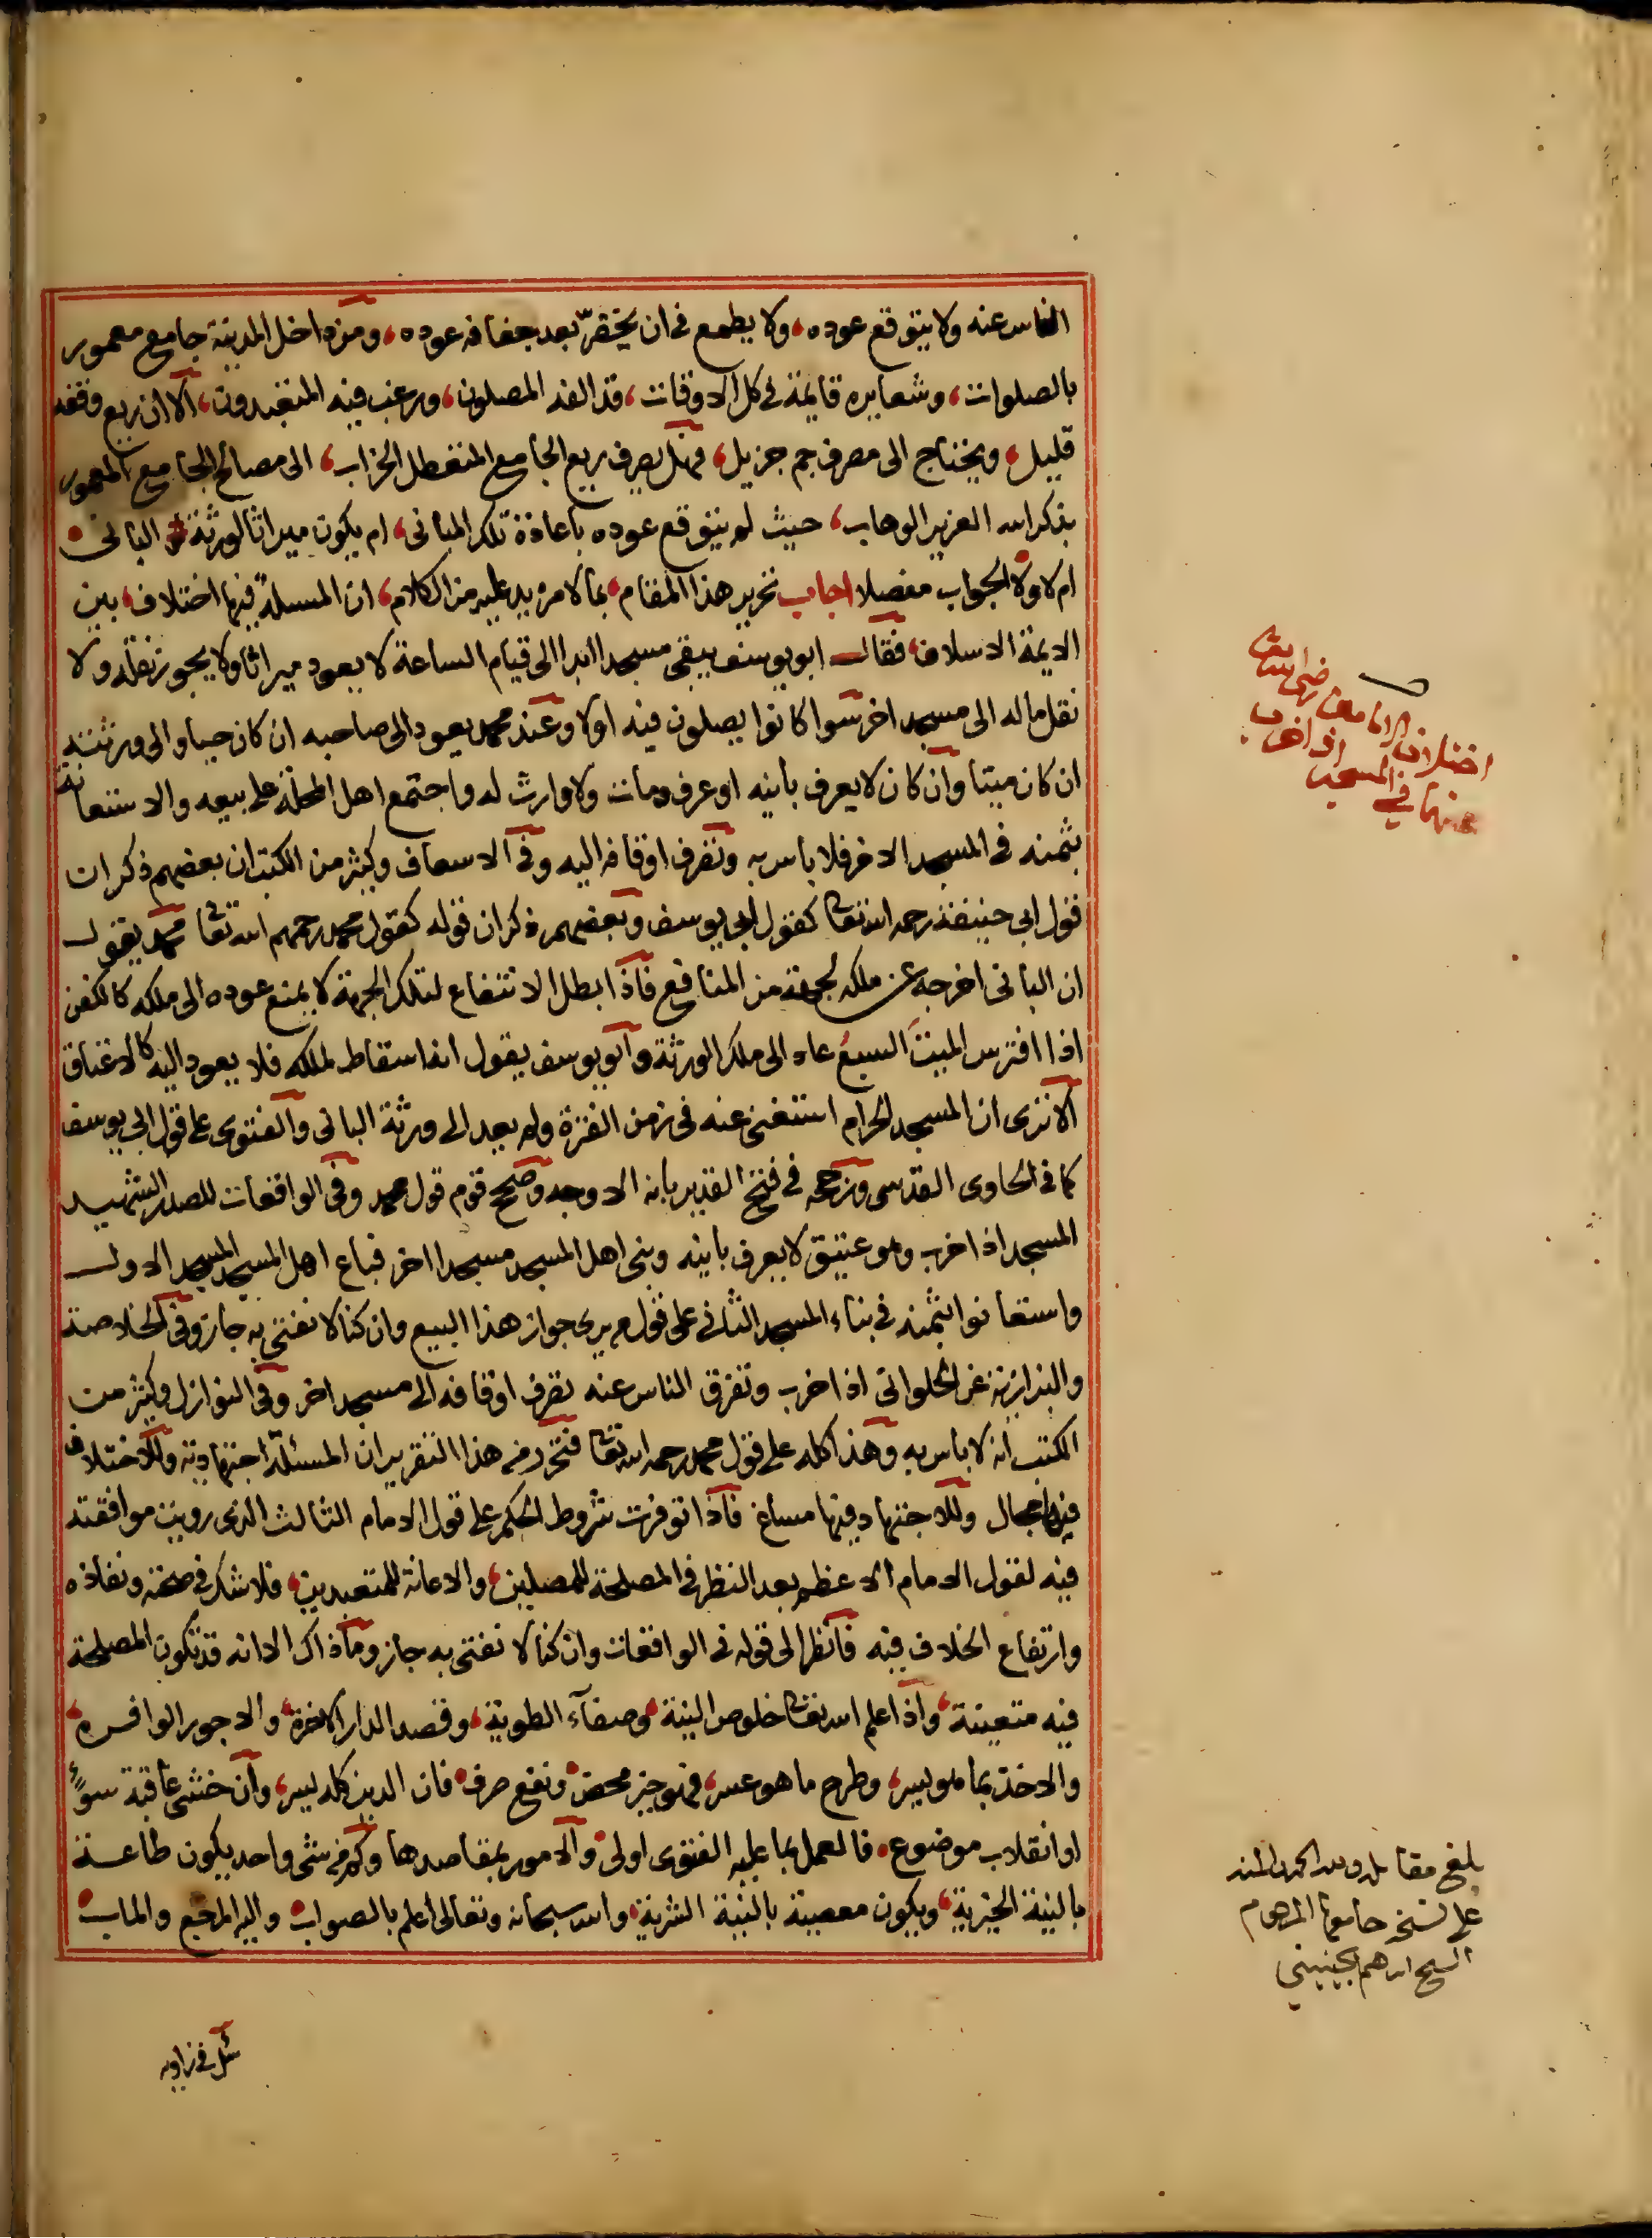 الناس عنه ولا يتوقع عوده، ولا يطمع في ان يخضرّ بعد جفافه عوده، ومن داخل المدينة جامع معمور
بالصلوات، وشعايره قايمة في كل الاوقات، قد الفه المصلون، ورغب فيه المتعبدون، الا ان ريع وقفه
قليل، ويحتاج الى مصرف جم جزيل، فهل يصرف ريع الجامع المتعطل الخراب، الى مصالح الجامع المعمور
بذكر الله العزيز الوهاب، حيث لم يتوقع عوده باعادة تلك المباني، ام يكون ميراثا لورثة الباني
ام لا ولا الجواب مفصلا اجاب تحرير هذا المقام، بما لا مزيد عليه من الكلام، ان المسئلة فيها اختلاف، بين
الايمة الاسلاف، فقال ابو يوسف يبقى مسجدا ابدا الى قيام الساعة لا يعود ميراثا ولا يجوز نقله ولا
نقل ماله الى مسجد اخر سوا كانوا يصلون فيه اولا وعند محمد يعود الى صاحبه ان كان حيا والى ورثته
ان كان ميتا وان كان لا يعرف بانيه او عرف ومات ولا وارث له واجتمع اهل المحلة على بيعه والاستعانة
بثمنه في المسجد الاخر فلا باس به وتصرف اوقافه اليه وفي الاسعاف وكثير من الكتب ان بعضهم ذكر ان
قول ابي حنيفة رحمه الله تعالى كقول ابي يوسف وبعضهم ذكر ان قوله كقول محمد رحمهم الله تعالى محمد يقول
ان الباني اخرجه عن ملكه لجهة من المنافع فاذا بطل الانتفاع لتلك الجهة لا يمنع عوده الى ملكه كالكفن
اذا افترس الميتَ السبعُ عاد الى ملك الورثة وابو يوسف يقول انه اسقاط لملكه فلا يعود اليه كالاعتاق
الا ترى ان المسجد الحرام استغنى عنه في زمن الفترة ولم يعد الى ورثة الباني والفتوى على قول ابي يوسف
كما في الحاوي القدسي ورجحه في فتح القدير بانه الاوجه وصحح قوم قول محمد وفي الواقعات للصدر الشهيد
المسجد اذا خرب وهو عتيق لا يعرف بانيه وبنى اهل المسجد مسجدا اخر فباع اهل المسجد المسجد الاول
واستعانوا بثمنه في بناء المسجد الثاني على قول م يرى جواز هذا البيع وان كنا لا نفتي به جاز وفي الخلاصة
والبزازية عن الحلواني اذا خرب وتفرق الناس عنه تصرف اوقافه الى مسجد اخر وفي النوازل وكثير من
الكتب انه لا باس به وهذا كله على قول محمد رحمه الله تعالى فتحرر من هذا التقرير ان المسئلة اجتهادية وللاختلاف
فيها مجال وللاجتهاد فيها مساغ فاذا توفرت شروط الحكم على قول الامام الثالث الذي رويت موافقته
فيه لقول الامام الاعظم بعد النظر في المصلحة للمصلين، والاعانة للمتعبدين، فلا شك في صحته ونفاذه
وارتفاع الخلاف فيه فانظر الى قوله في الواقعات وان كنا لا نفتي به جاز وما ذاك الا انه قد تكون المصلحة
فيه متعينة، واذا علم الله تعالى خلوص النية، وصفاء الطوية، وقصد الدار الاخرة، والاجور الوافرة،
والاخذ بما هو يسر، وطرح ما هو عسر، فهو خير محض ونفع صرف فان الدين كله يسر، وان خشي عاقبة سوءٍ
او انقلاب موضوع، فالعمل بما عليه الفتوى اولى والامور بمقاصدها وكم من شي واحد يكون طاعة
بالنية الخيرية، ويكون معصية بالنية الشرية، والله سبحانه وتعالى اعلم بالصواب، واليه المرجع والماب
اختلاف الامامين رضي الله تعالى
عنهما في المسجد اذا خرب
بلغ مقابلة ولله الحمد والمنة
على نسخة جامعها المرحوم
الشيخ ابرهيم الجينيني
سئل في زاوية